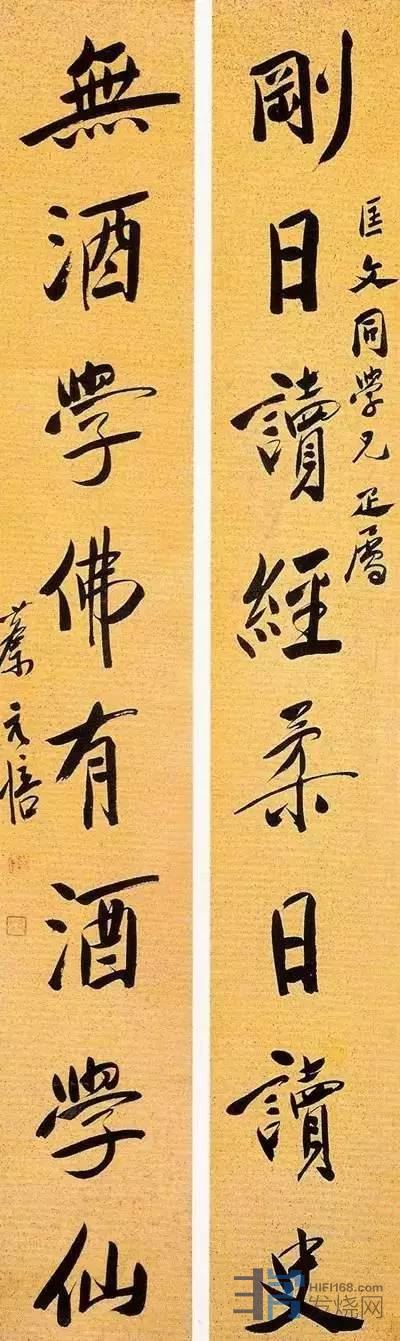 匡文同學兄正屬
剛日讀經柔日讀史
無酒學佛有酒學仙
蔡元培
HIFI168.com
发烧网